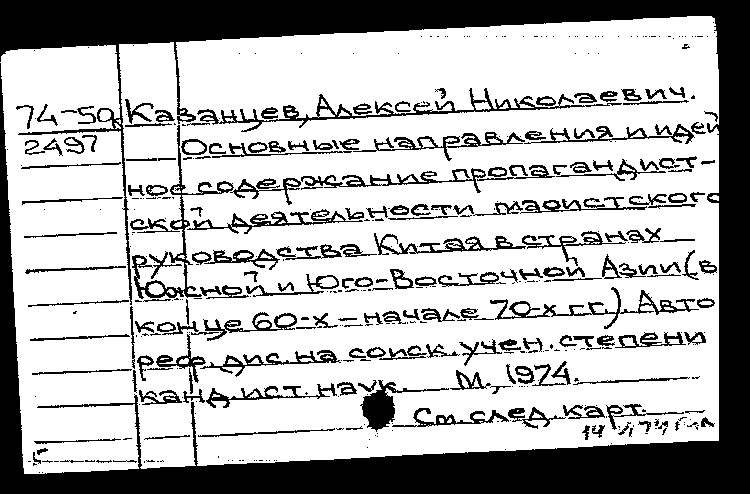 74-5а Казанцев, Алексей Николаевич.
2497 Основные направления и идей
ное содержание пропагандист-
ской деятельности маоистского
руководства Китая в странах
Южной и Юго-Восточной Азии (в
конце 60-х – начале 70-х гг.). Авто
реф. дис. на соиск. учен. степени
канд. ист. наук. М., 1974.
См. след. карт.
14
5